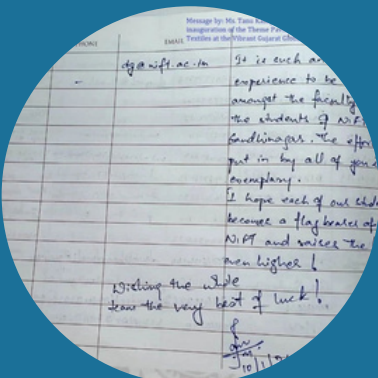 Message by: Ms. Tanu
inauguration of the Theme
EMAIL Textiles at the Vibrant Gujarat
dg@nift.ac.in It is such an
experience to be
amongst the faculty
the students of NIFT
Gandhinagar. The effor
put in by all of you
exemplary.
I hope each of our
becomes a flag bearer of
NIFT and raises the
even higher!
Wishing the whole
team the very best of luck!
10/1/